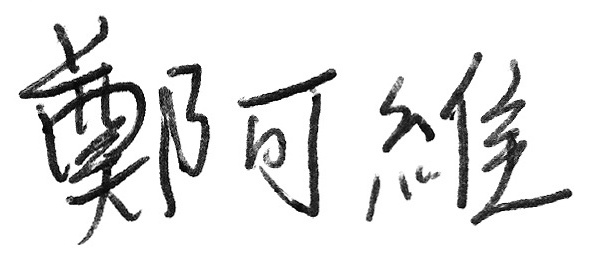 鄭可維